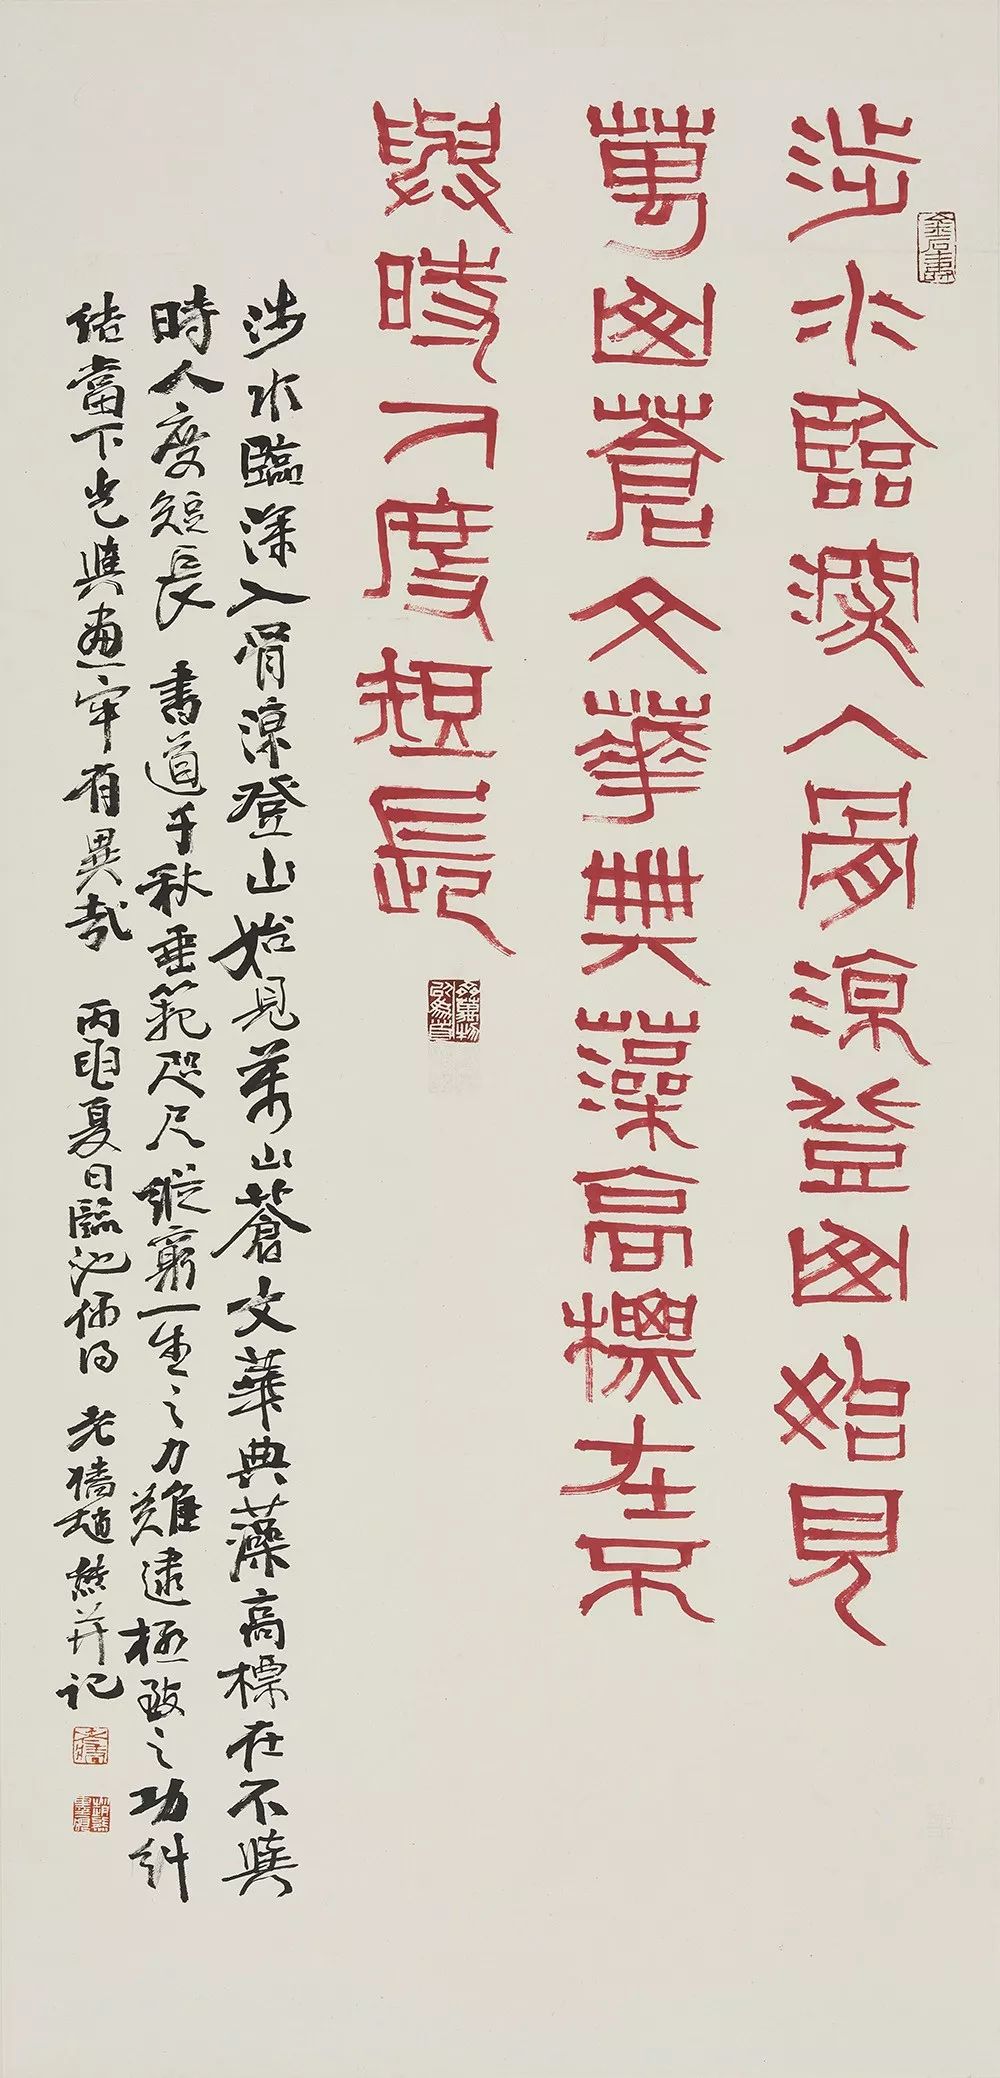 涉水臨深入骨涼登山始見
萬山蒼文華典藻高標在不
與時人度短長
涉水臨深入骨涼登山始見萬山蒼文華典藻高標在不與
時人度短長 書道千秋垂範咫尺縱窮一生之力難逮極致之功糾
結當下光與畫牢有異哉 丙申夏日臨池偶得 老獢趙熊并記
金石壽